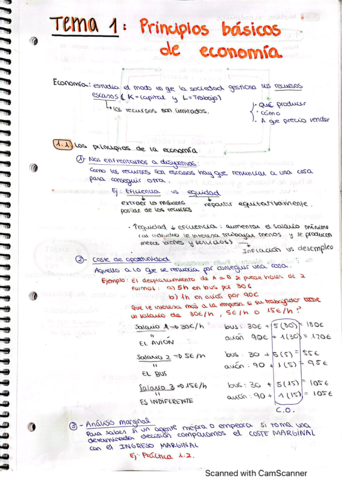 TEMA 1: Principios básicos
de economía
Economía: estudia el modo en que la sociedad gestiona sus recursos
escasos (K=capital y L=Trabajo)
los recursos son limitados.
- Qué producir
- Cómo
- A que precio vender
1.1 Los principios de la economía
① Nos enfrentamos a disyuntivas
Como los recursos son escasos hay que renunciar a una cosa
para conseguir otra.
Ej: Eficiencia vs equidad
extraer lo máximo repartir equitativamente.
posible de los recursos
↑ equidad ↓ eficiencia: aumentar el salario mínimo
(al individuo le interesa trabajar menos y se producen
menos bienes y servicios)
Inflación vs desempleo
② - Coste de oportunidad
Aquello a lo que se renuncia por conseguir una cosa.
Ejemplo: El desplazamiento de A a B se puede hacer de 2
formas: a) 5h en bus por 30€
b) 1h en avión por 90€
Que le interesa más a la empresa si su trabajador tiene
un salario de 30€/h, 5€/h o 15€/h?
Salario 1 → 30€/h bus: 30€ + 5(30) = 180€
EL AVIÓN avión 90€ + 1(30) = 120€
Salario 2 → 5€/h bus: 30 + 5(5) = 55€
EL BUS avión: 90 + 1(5) = 95€
Salario 3 → 15€/h bus: 30 + 5(15) = 105€
ES INDIFERENTE avión: 90 + 1(15) = 105€
C.O.
③ - Análisis marginal
Para saber si un agente mejora o empeora si toma una
determinada decisión comparamos el COSTE MARGINAL
con el INGRESO MARGINAL
Ej: Práctica 1.2.
Scanned with CamScanner